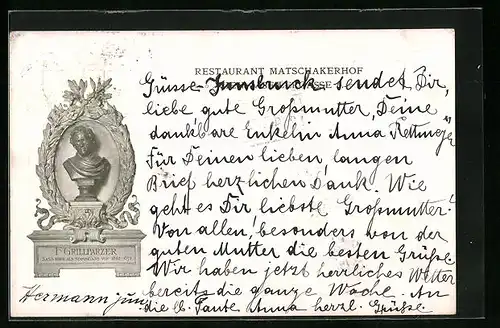 RESTAURANT MATSCHAKERHOF
Grüsse Innsbruck sendet Dir,
liebe, gute Großmutter, Deine
dankbare Enkelin Anna
Für Deinen lieben, langen
Brief herzlichen Dank. Wie
geht es Dir liebste Großmutter?
Von allen, besonders von der
guten Mutter die besten Grüße.
Wir haben jetzt herrliches Wetter
bereits die ganze Woche. An
die Tante Anna herzl. Grüsse.
Hermann jun.
F. GRILLPARZER